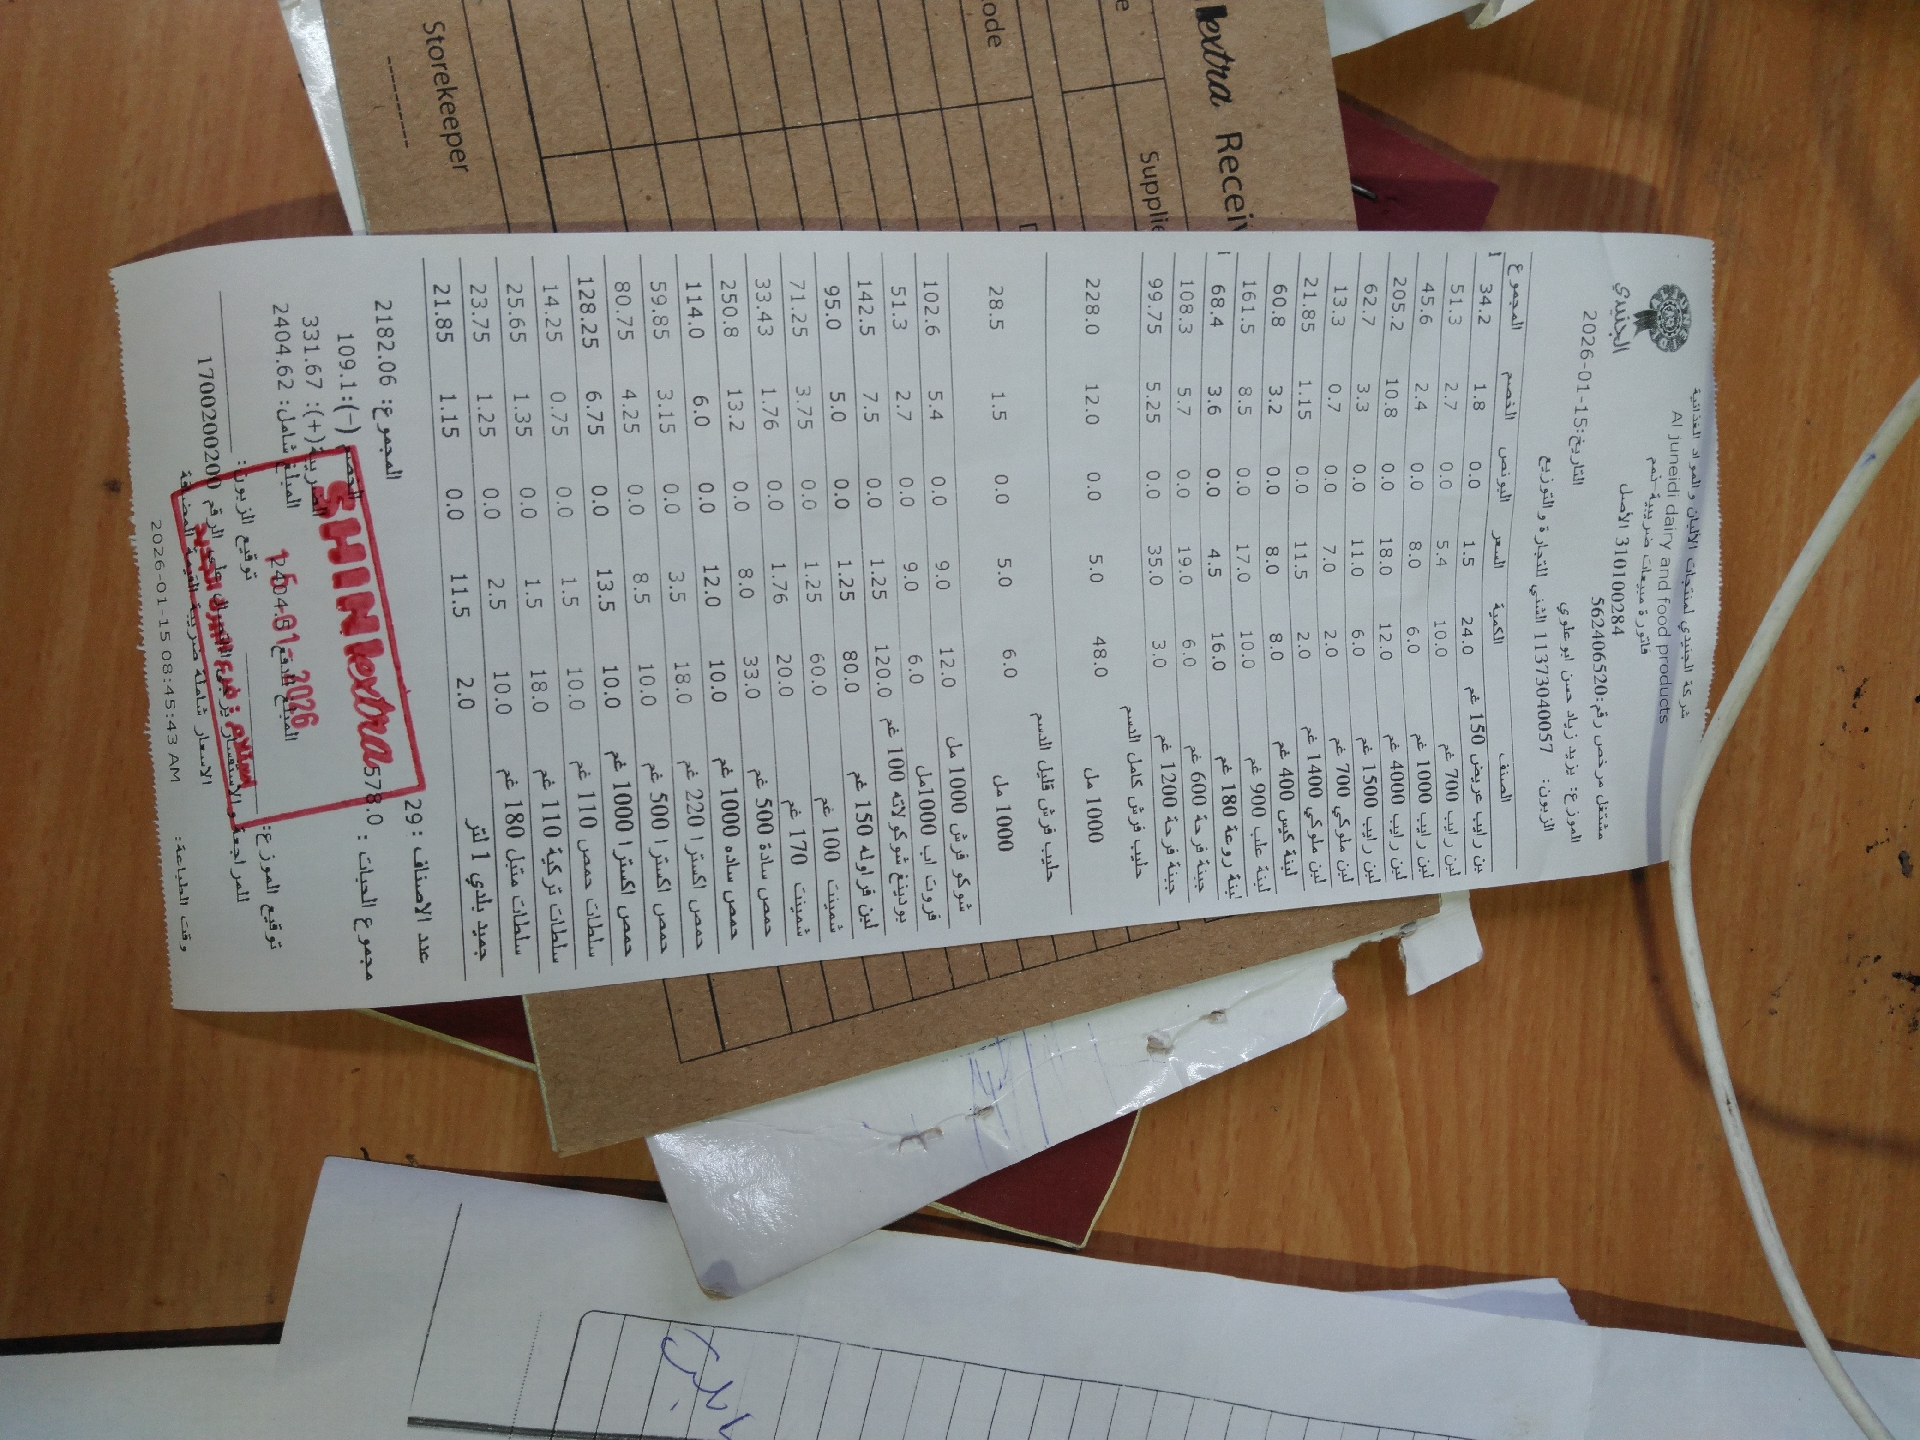 شركة الجنيدي لمنتجات الألبان والمواد الغذائية
Al juneidi dairy and food products
الجنيدي
فاتورة مبيعات ضريبية-نعم
310100284 الأصل
مشتغل مرخص رقم:562406520
التاريخ:2026-01-15
الموزع: يزيد زياد حسن ابو علوي
الزبون: 11373040057 الشني للتجارة والتوزيع
الصنف الكمية السعر البونص الخصم المجموع
بن رايب عريض 150 غم 24.0 1.5 0.0 1.8 34.2
لبن رايب 700 غم 10.0 5.4 0.0 2.7 51.3
لبن رايب 1000 غم 6.0 8.0 0.0 2.4 45.6
لبن رايب 4000 غم 12.0 18.0 0.0 10.8 205.2
لبن رايب 1500 غم 6.0 11.0 0.0 3.3 62.7
لبن ملوكي 700 غم 2.0 7.0 0.0 0.7 13.3
لبن ملوكي 1400 غم 2.0 11.5 0.0 1.15 21.85
لبنة كيس 400 غم 8.0 8.0 0.0 3.2 60.8
لبنة علب 900 غم 10.0 17.0 0.0 8.5 161.5
لبنة روعة 180 غم 16.0 4.5 0.0 3.6 68.4
جبنة فرحة 600 غم 6.0 19.0 0.0 5.7 108.3
جبنة فرحة 1200 غم 3.0 35.0 0.0 5.25 99.75
حليب فرش كامل الدسم
1000 مل 48.0 5.0 0.0 12.0 228.0
حليب فرش قليل الدسم
1000 مل 6.0 5.0 0.0 1.5 28.5
شوكو فرش 1000 مل 12.0 9.0 0.0 5.4 102.6
فروت اب 1000مل 6.0 9.0 0.0 2.7 51.3
بودينغ شوكولاته 100 غم 120.0 1.25 0.0 7.5 142.5
لبن فراوله 150 غم 80.0 1.25 0.0 5.0 95.0
شمينت 100 غم 60.0 1.25 0.0 3.75 71.25
شمينت 170 غم 20.0 1.76 0.0 1.76 33.43
حمص سادة 500 غم 33.0 8.0 0.0 13.2 250.8
حمص ساده 1000 غم 10.0 12.0 0.0 6.0 114.0
حمص اكسترا 220 غم 18.0 3.5 0.0 3.15 59.85
حمص اكسترا 500 غم 10.0 8.5 0.0 4.25 80.75
حمص اكسترا 1000 غم 10.0 13.5 0.0 6.75 128.25
سلطات حمص 110 غم 10.0 1.5 0.0 0.75 14.25
سلطات تركية 110 غم 18.0 1.5 0.0 1.35 25.65
سلطات متبل 180 غم 10.0 2.5 0.0 1.25 23.75
جميد بلدي 1 لتر 2.0 11.5 0.0 1.15 21.85
عدد الاصناف : 29
المجموع: 2182.06
مجموع الحبات : 578.0
الخصم (-): 109.1
الضريبة(+): 331.67
المبلغ شامل: 2404.62
توقيع الموزع:
توقيع الزبون:
للمراجعة والاستفسار الرقم 1700200200
الاسعار شاملة ضريبة القيمة المضافة
وقت الطباعة: 2026-01-15 08:45:43 AM
SHINI extra
15-01-2026
extra Receiv
Supplie
ode
Storekeeper